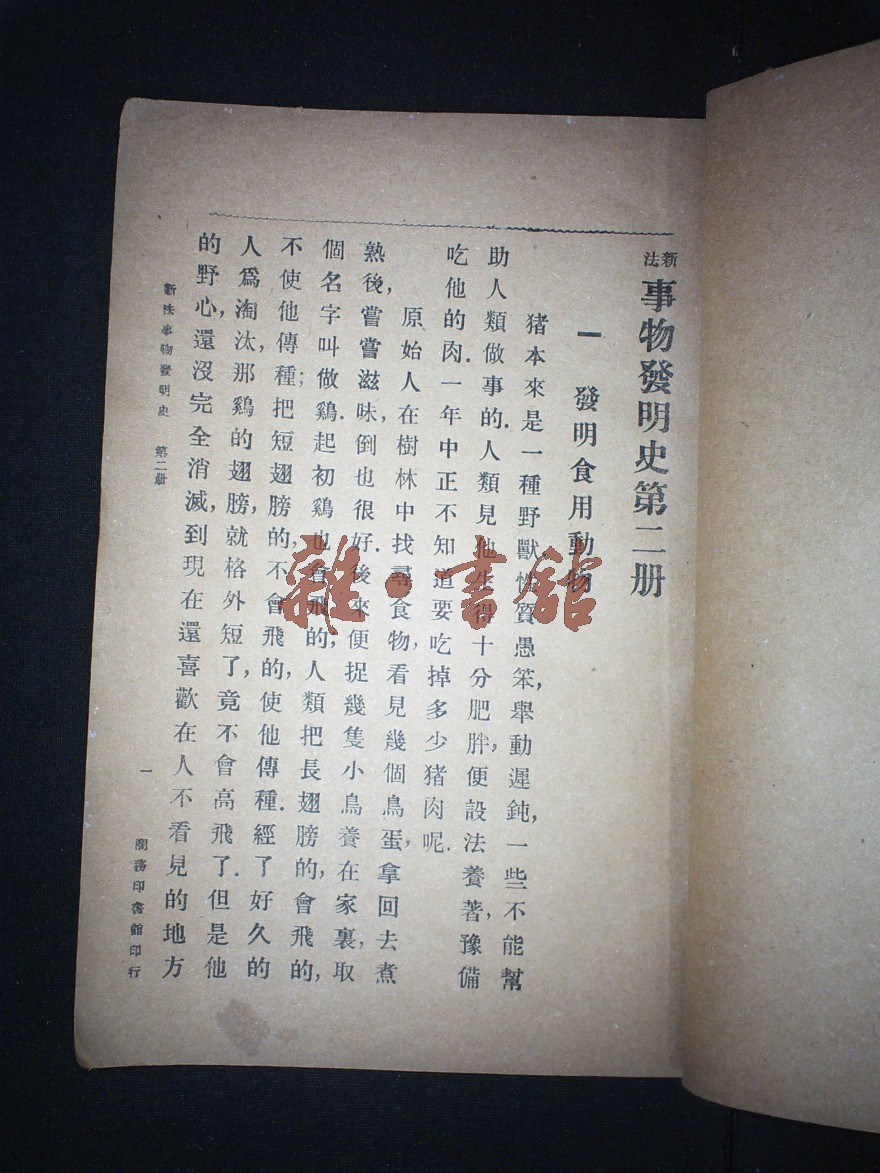 新法 事物發明史第二册
一 發明食用動物
猪本來是一種野獸,性質愚笨,舉動遲鈍,一些不能幫
助人類做事的.人類見他生得十分肥胖,便設法養著,豫備
吃他的肉.一年中正不知道要吃掉多少猪肉呢.
原始人在樹林中找尋食物,看見幾個鳥蛋,拿回去煮
熟後,嘗嘗滋味,倒也很好.後來便捉幾隻小鳥養在家裏,取
個名字叫做鷄.起初鷄也會飛的;人類把長翅膀的,會飛的,
不使他傳種;把短翅膀的,不會飛的,使他傳種.經了好久的
人爲淘汰,那鷄的翅膀,就格外短了,竟不會高飛了.但是他
的野心,還沒完全消滅,到現在還喜歡在人不看見的地方
新法事物發明史 第二册
一
商務印書館印行
雜·書館